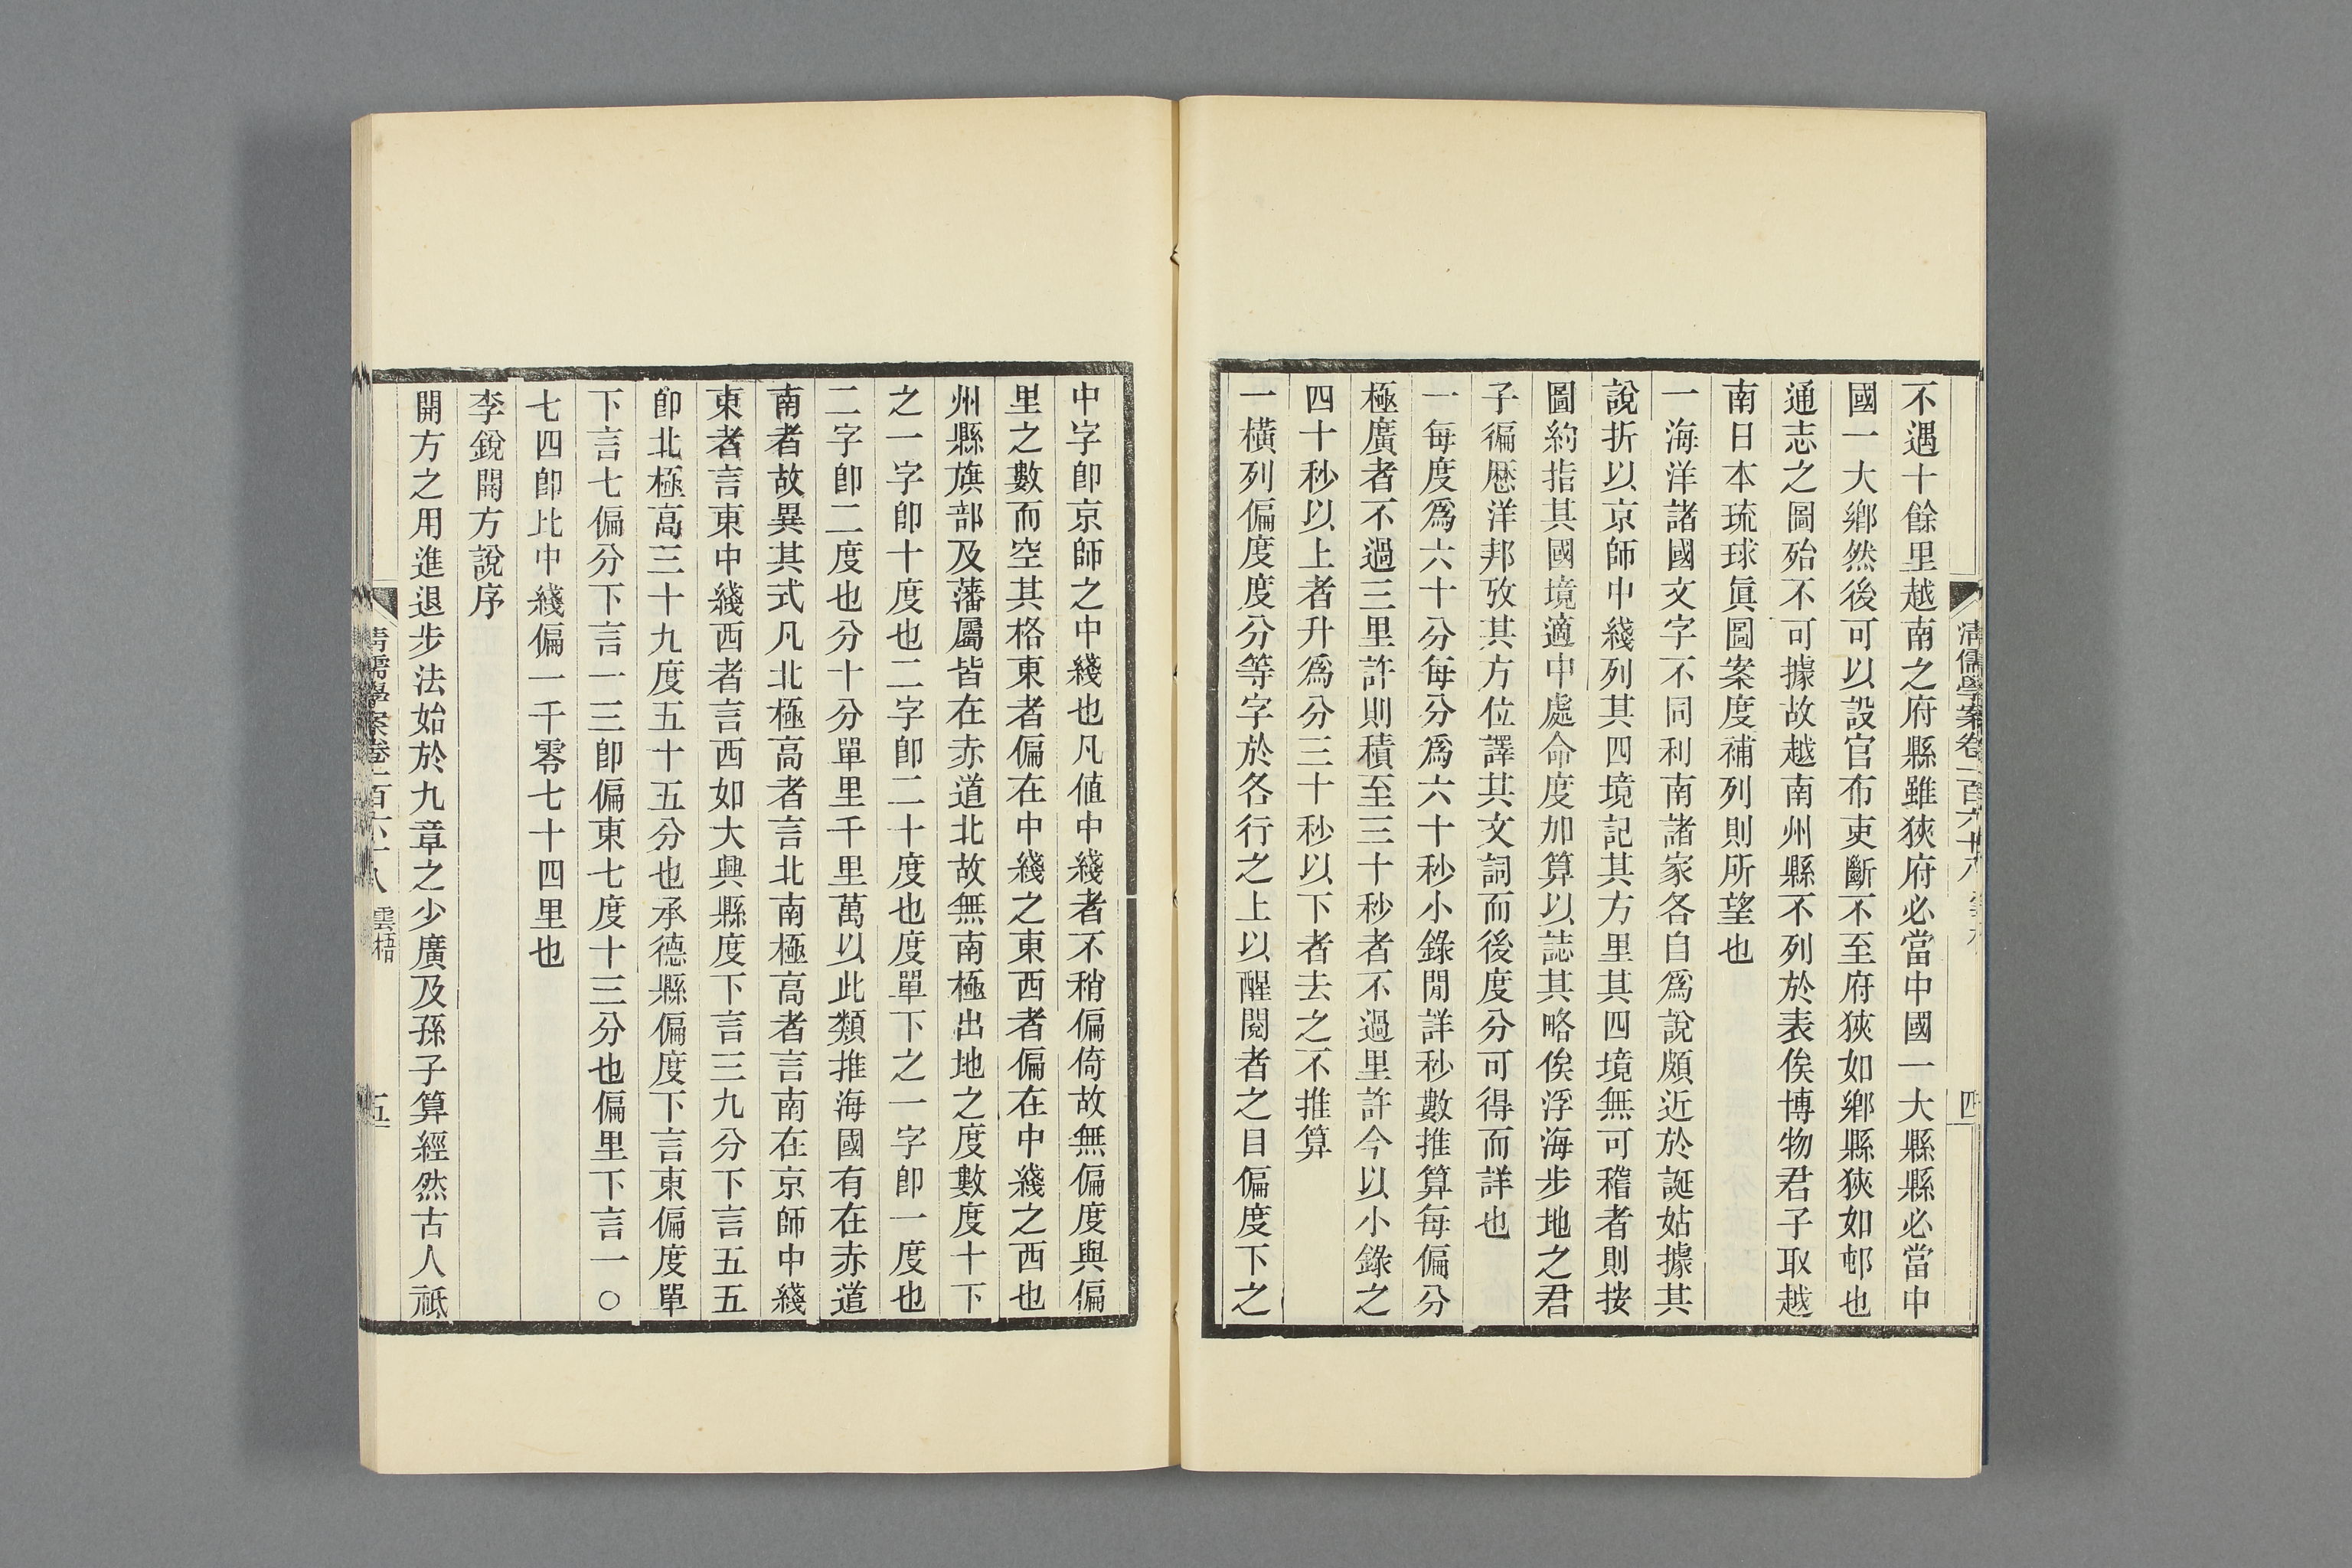 不遇十餘里越南之府縣雖狹府必當中國一大縣縣必當中
國一大鄉然後可以設官布吏斷不至府狹如鄉縣狹如邨也
通志之圖殆不可據故越南州縣不列於表俟博物君子取越
南日本琉球眞圖案度補列則所望也
一海洋諸國文字不同利南諸家各自爲說頗近於誕姑據其
說折以京師中綫列其四境記其方里其四境無可稽者則按
圖約指其國境適中處命度加算以誌其略俟浮海步地之君
子徧厯洋邦攷其方位譯其文詞而後度分可得而詳也
一每度爲六十分每分爲六十秒小錄閒詳秒數推算每偏分
極廣者不過三里許則積至三十秒者不過里許今以小錄之
四十秒以上者升爲分三十秒以下者去之不推算
一橫列偏度度分等字於各行之上以醒閱者之目偏度下之
清儒學案卷一百六十八
四
中字卽京師之中綫也凡値中綫者不稍偏倚故無偏度與偏
里之數而空其格東者偏在中綫之東西者偏在中綫之西也
州縣旗部及藩屬皆在赤道北故無南極出地之度數度十下
之一字卽十度也二字卽二十度也度單下之一字卽一度也
二字卽二度也分十分單里千里萬以此類推海國有在赤道
南者故異其式凡北極高者言北南極高者言南在京師中綫
東者言東中綫西者言西如大興縣度下言三九分下言五五
卽北極高三十九度五十五分也承德縣偏度下言東偏度單
下言七偏分下言一三卽偏東七度十三分也偏里下言一〇
七四卽比中綫偏一千零七十四里也
李銳開方說序
開方之用進退步法始於九章之少廣及孫子算經然古人祗
清儒學案卷一百六十八 雲梧
五